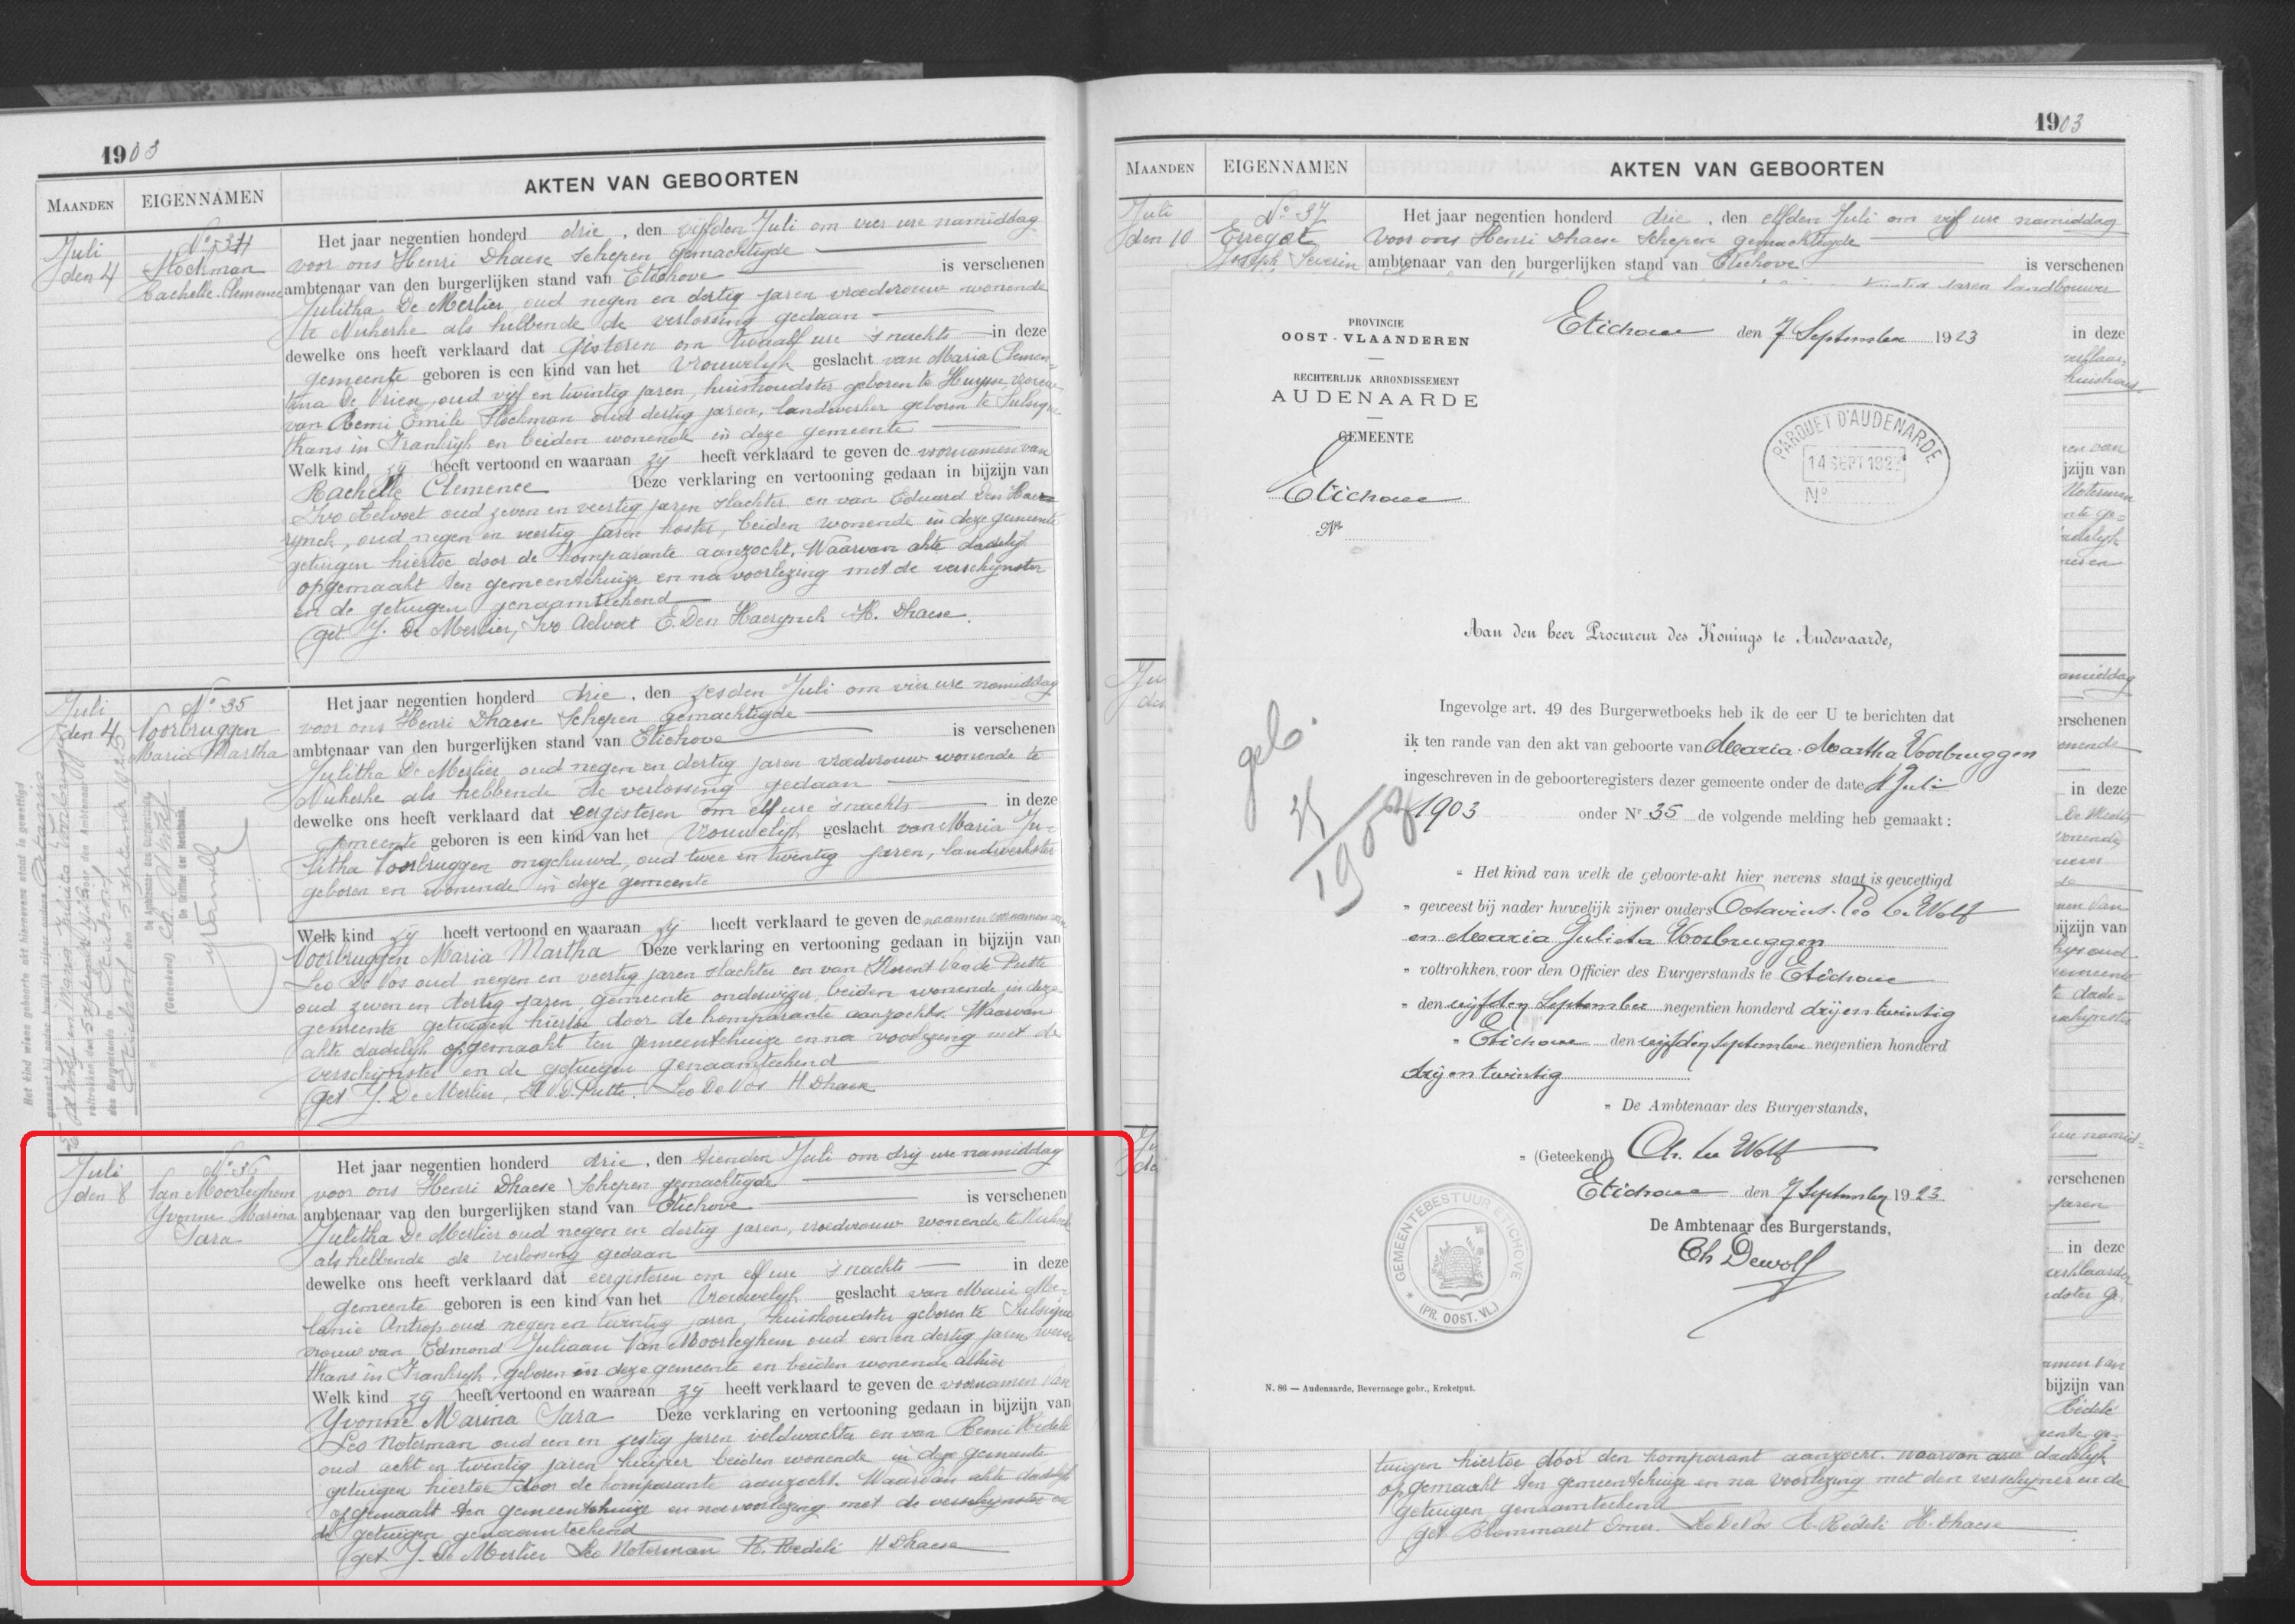 1903
MAANDEN
EIGENNAMEN
AKTEN VAN GEBOORTEN
Juli
den 4
N° 34
Stockman
Rachelle Clemence
Het jaar negentien honderd drie, den vijfden Juli om vier ure namiddag
voor ons Henri Dhaese Schepen gemachtigde
ambtenaar van den burgerlijken stand van Etichove is verschenen
Julitha De Merlier, oud negen en dertig jaren vroedvrouw wonende
te Nukerke als hebbende de verlossing gedaan
dewelke ons heeft verklaard dat gisteren om twaalf ure 's nachts in deze
gemeente geboren is een kind van het vrouwelijk geslacht van Maria Clemen-
tina De Vriese, oud vijf en twintig jaren, huishoudster geboren te Huysse, vrouw
van Remi Emile Stockman oud dertig jaren, landwerker geboren te Sulsique
thans in Frankrijk en beiden wonende in deze gemeente
Welk kind zij heeft vertoond en waaraan zij heeft verklaard te geven de voornamen van
Rachelle Clemence Deze verklaring en vertooning gedaan in bijzijn van
Ivo Aelvoet oud zeven en veertig jaren slachter en van Eduard Den Haer-
ynck, oud negen en veertig jaren koster, beiden wonende in deze gemeente
getuigen hiertoe door de komparante aanzocht. Waarvan akte dadelijk
opgemaakt ten gemeentehuize en na voorlezing met de verschijnster
en de getuigen genaamteekend
(get J. De Merlier, Ivo Aelvoet E. Den Haerynck H. Dhaese.
Juli
den 4
N° 35
Voorbruggen
Maria Martha
Het jaar negentien honderd drie, den zesden Juli om vier ure namiddag
voor ons Henri Dhaese Schepen gemachtigde
ambtenaar van den burgerlijken stand van Etichove is verschenen
Julitha De Merlier, oud negen en dertig jaren vroedvrouw wonende te
Nukerke als hebbende de verlossing gedaan
dewelke ons heeft verklaard dat eergisteren om elf ure 's nachts in deze
gemeente geboren is een kind van het vrouwelijk geslacht van Maria Ju-
litha Voorbruggen ongehuwd, oud twee en twintig jaren, landwerkster
geboren en wonende in deze gemeente
Welk kind zij heeft vertoond en waaraan zij heeft verklaard te geven de naamen voornamen van
Voorbruggen Maria Martha Deze verklaring en vertooning gedaan in bijzijn van
Leo De Vos oud negen en veertig jaren slachter en van Florent Van de Putte
oud zeven en dertig jaren, gemeente onderwijzer, beiden wonende in deze
gemeente getuigen hiertoe door de komparante aanzocht. Waarvan
akte dadelijk opgemaakt ten gemeentehuize en na voorlezing met de
verschijnster en de getuigen genaamteekend
(get J. De Merlier, V.D. Putte. Leo De Vos H. Dhaese
Het kind wiens geboorte akt hiernevens staat is gewettigd
geweest bij nader huwelijk zijner ouders
voltrokken den 5 September 1923 voor den Ambtenaar
des Burgerstands te Etichove
De Ambtenaar des Burgerstands
(Geteekend)
De Griffier der Rechtbank
Juli
den 8
N° 36
Van Moorleghem
Yvonne Marina
Sara
Het jaar negentien honderd drie, den tienden Juli om drij ure namiddag
voor ons Henri Dhaese Schepen gemachtigde
ambtenaar van den burgerlijken stand van Etichove is verschenen
Julitha De Merlier oud negen en dertig jaren, vroedvrouw wonende te Nukerke
als hebbende de verlossing gedaan
dewelke ons heeft verklaard dat eergisteren om elf ure 's nachts in deze
gemeente geboren is een kind van het vrouwelijk geslacht van Marie Me-
lanie Antrop oud negen en twintig jaren, huishoudster geboren te Sulsique
vrouw van Edmond Juliaan Van Moorleghem oud een en dertig jaren wever
thans in Frankrijk, geboren in deze gemeente en beiden wonende alhier
Welk kind zij heeft vertoond en waaraan zij heeft verklaard te geven de voornamen van
Yvonne Marina Sara Deze verklaring en vertooning gedaan in bijzijn van
Leo Noterman oud een en zestig jaren veldwachter en van Remi Hedele
oud acht en twintig jaren kuiper beiden wonende in deze gemeente
getuigen hiertoe door de komparante aanzocht. Waarvan akte dadelijk
opgemaakt ten gemeentehuize en na voorlezing met de verschijnster en
de getuigen genaamteekend
(get J. De Merlier Leo Noterman R. Hedele H Dhaese
1903
MAANDEN
EIGENNAMEN
AKTEN VAN GEBOORTEN
Juli
den 10
N° 37
Erregat
Joseph Severin
Het jaar negentien honderd drie, den elfden Juli om vijf ure namiddag
voor ons Henri Dhaese Schepen gemachtigde
ambtenaar van den burgerlijken stand van Etichove is verschenen
jaren landbouwer
in deze
PROVINCIE
OOST-VLAANDEREN
RECHTERLIJK ARRONDISSEMENT
AUDENAARDE
GEMEENTE
Etichove
N°
Etichove den 7 September 1923
PARQUET D'AUDENARDE
14 SEPT 1923
N°
Aan den heer Procureur des Konings te Audenaarde,
geb.
1903
Ingevolge art. 49 des Burgerwetboeks heb ik de eer U te berichten dat
ik ten rande van den akt van geboorte van Maria-Martha Voorbruggen
ingeschreven in de geboorteregisters dezer gemeente onder de date 4 Juli
1903 onder Nr 35 de volgende melding heb gemaakt:
" Het kind van welk de geboorte-akt hier nevens staat is gewettigd
" geweest bij nader huwelijk zijner ouders Octavius-Leo De Wolf
en Maria Julieta Voorbruggen
" voltrokken voor den Officier des Burgerstands te Etichove
" den vijfden September negentien honderd drijentwintig
" Etichove den vijfden September negentien honderd
drijentwintig
" De Ambtenaar des Burgerstands,
" (Geteekend) Ch. De Wolf
Etichove den 7 September 1923
De Ambtenaar des Burgerstands,
Ch Dewolf
GEMEENTEBESTUUR ETICHOVE
(PR. OOST. VL.)
N. 86 — Audenaarde, Bevernaege gebr., Krekelput.
jzijn van
Noterman
erschenen
in deze
bijzijn van
verschenen
jaren
in deze
bijzijn van
Hedele
tuigen hiertoe door den komparant aanzocht. Waarvan akte dadelijk
opgemaakt ten gemeentehuize en na voorlezing met den verschijner en de
getuigen genaamteekend
get Blommaert Omer. Leo De Vos R. Hedele H. Dhaese